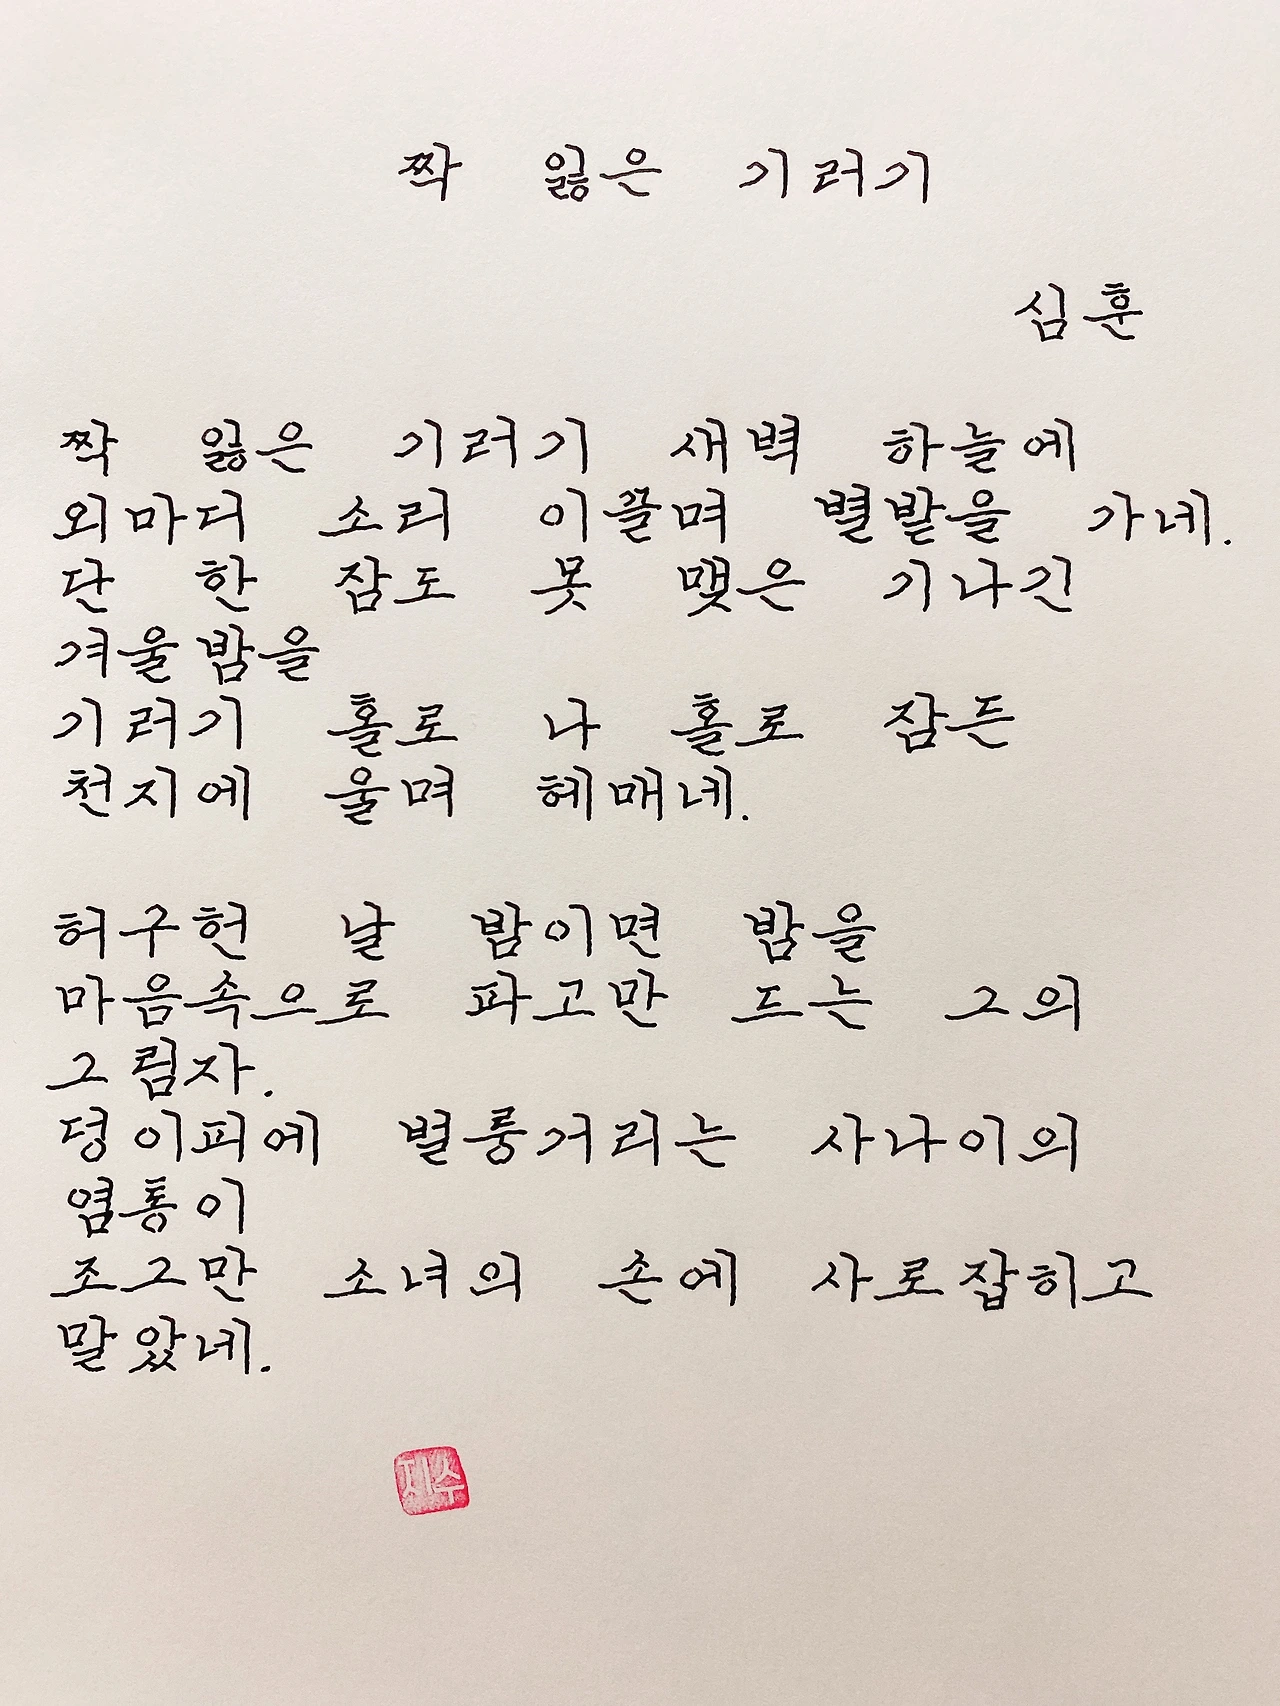 짝 잃은 기러기
심훈
짝 잃은 기러기 새벽 하늘에
외마디 소리 이끌며 별밭을 가네.
단 한 잠도 못 맺은 기나긴
겨울밤을
기러기 홀로 나 홀로 잠든
천지에 울며 헤매네.
허구헌 날 밤이면 밤을
마음속으로 파고만 드는 그의
그림자.
덩이피에 별룽거리는 사나이의
염통이
조그만 소녀의 손에 사로잡히고
말았네.
제수